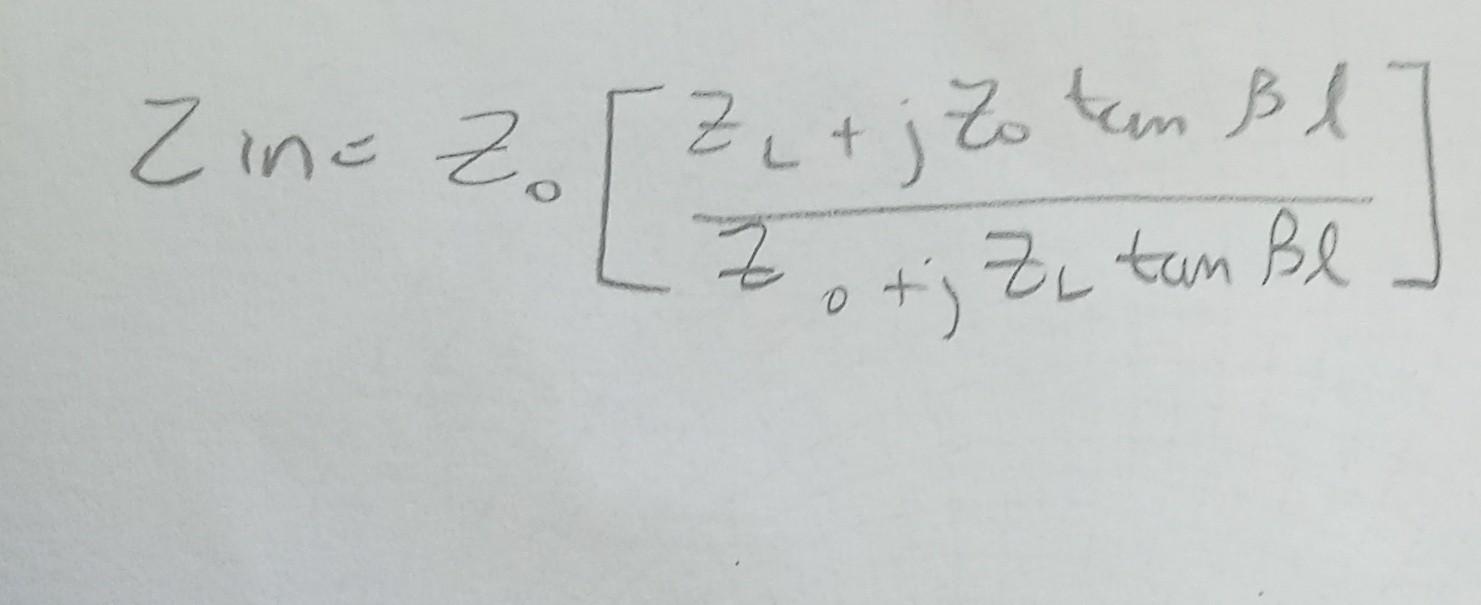 Zin = Z₀ [ (Z_L + j Z₀ tan β l) / (Z₀ + j Z_L tan β l) ]